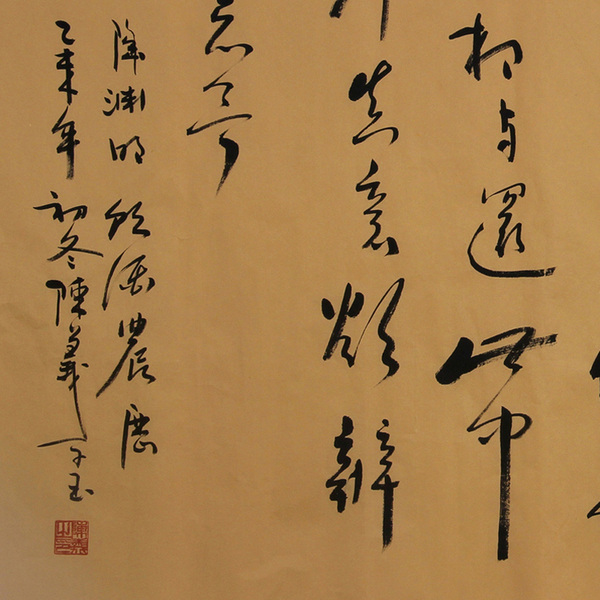 相与還此中
真意欲辨
忘言
陶渊明飲酒農歷
乙未年初冬陳義